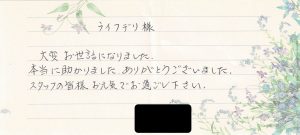 ライフデリ様
大変お世話になりました.
本当に助かりました ありがとうございました.
スタッフの皆様 お元気でお過ごし下さい.